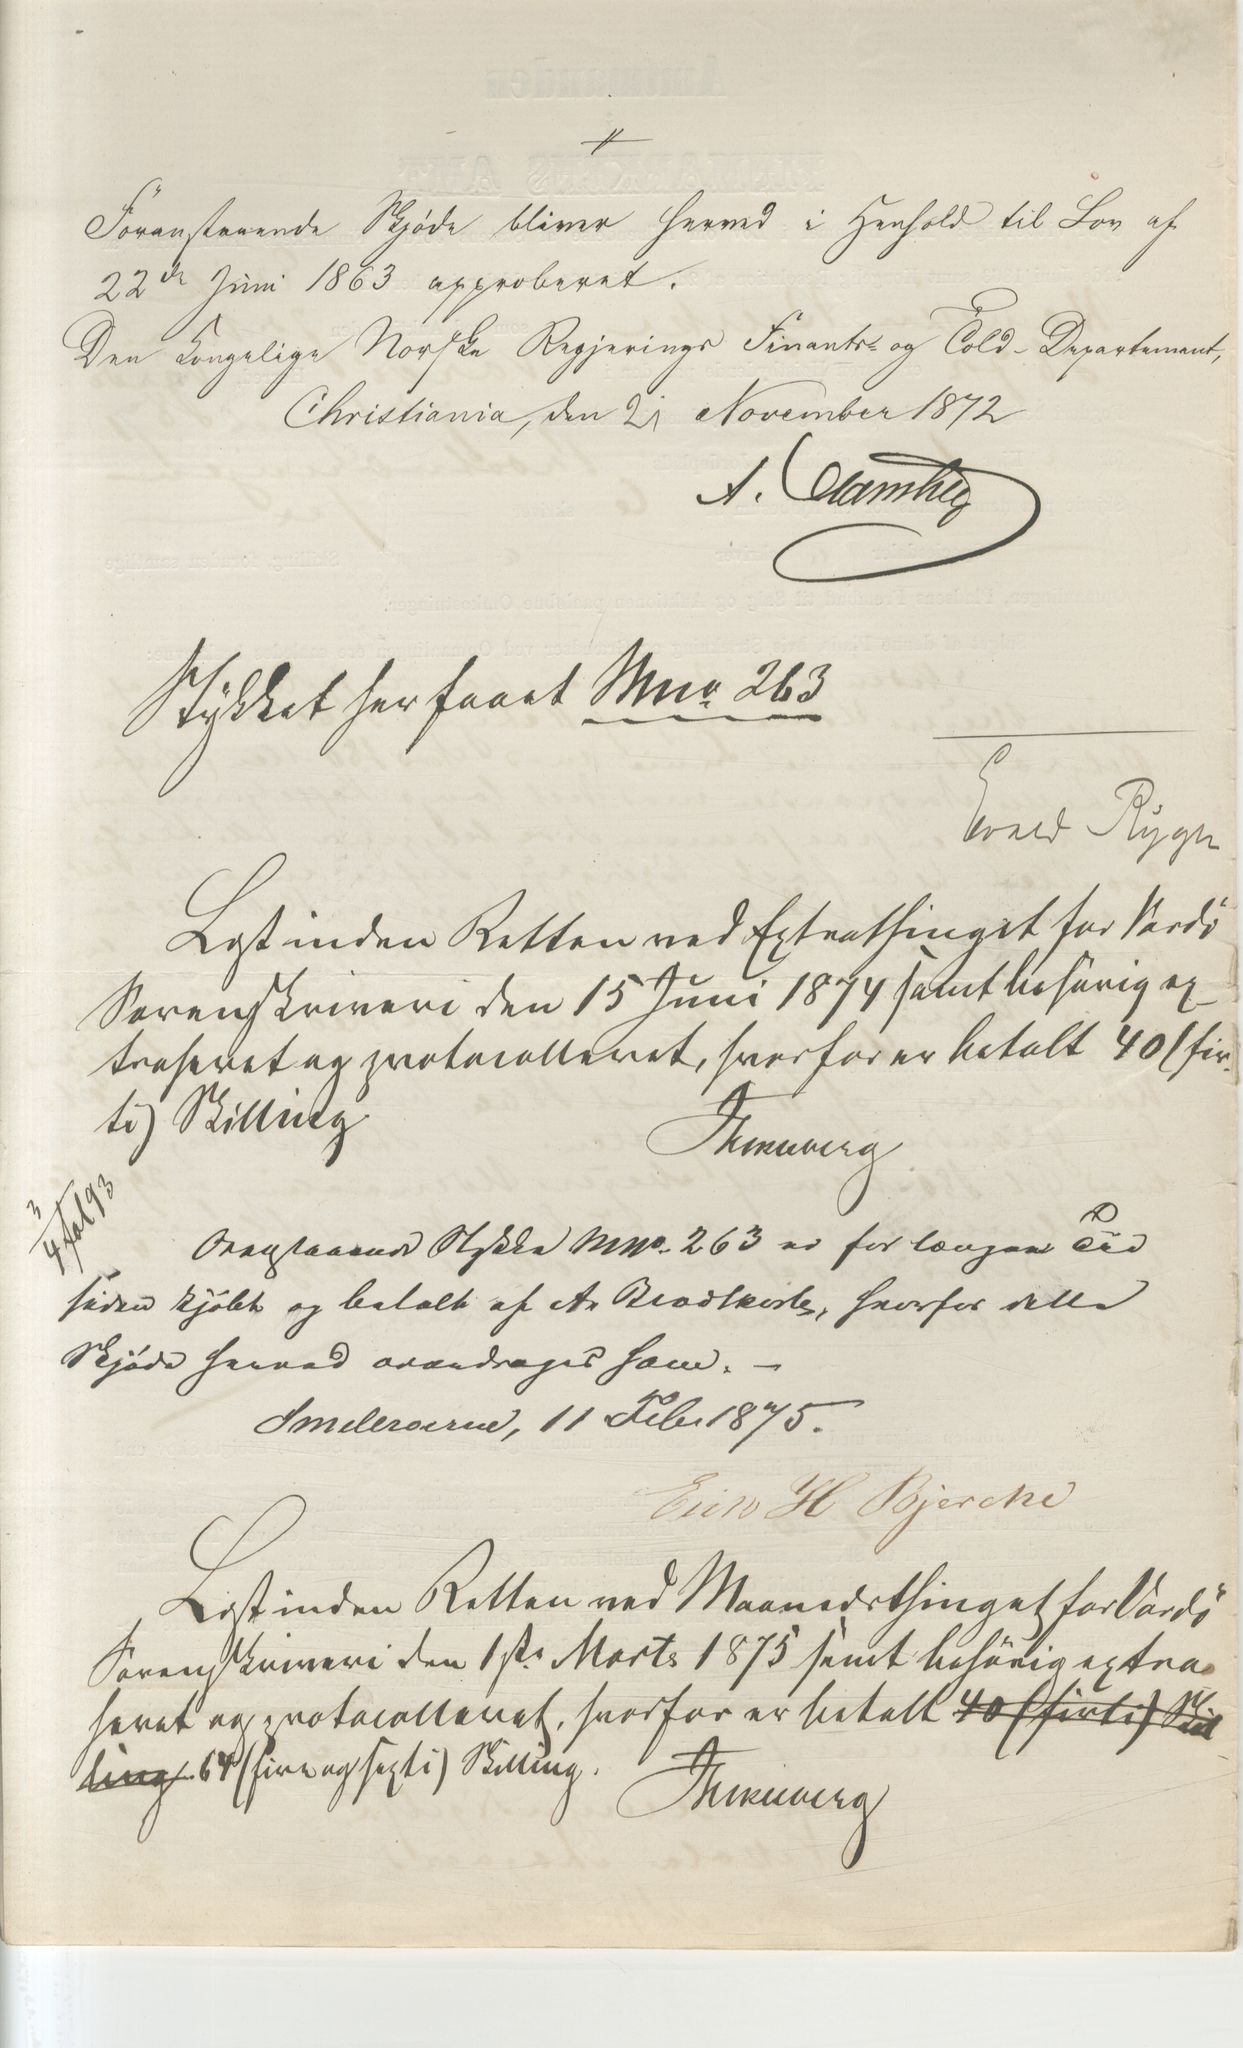 Foranstaaende Skjøde bliver herved i Henhold til Lov af
22de Juni 1863 approberet.
Den Kongelige Norske Regjerings Finants- og Told-Departement,
Christiania, den 21 November 1872
A.
Stykket her faaet Mno. 263
Evald Rygh
Læst inden Retten ved Extrathinget for Vardö
Sorenskriveri den 15 Juni 1874 samt behörig ex-
traheret og protocolleret, hvorfor er betalt 40 (fir-
ti) Skilling
3/4 fol 93
Ovenstaaende Stykke Mno. 263 er for længere Tid
siden kjöbt og betalt af hvorfor dette
Skjøde herved overdrages ham. -
11 Febr 1875.
H Bjercke
Læst inden Retten ved Maanedsthinget for Vardö
Sorenskriveri den 1ste Marts 1875 samt behörig extra
heret og protocolleret, hvorfor er betalt 40 (firti) Skil
ling 64 (fire og sexti) Skilling.